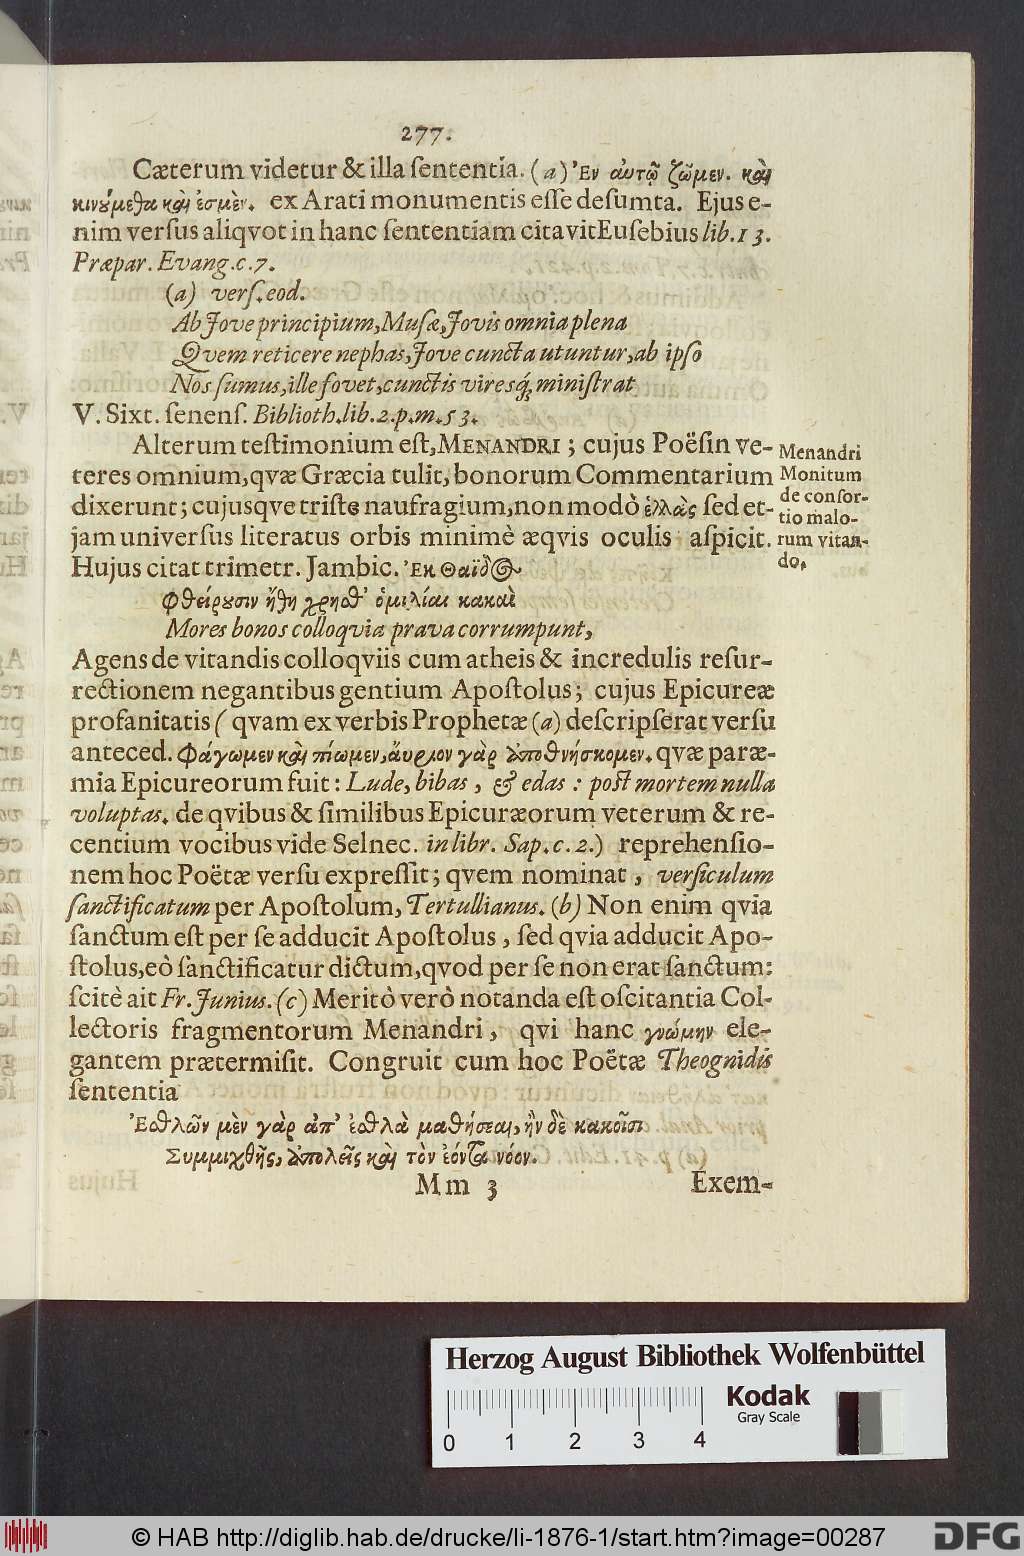 277.
Cæterum videtur & illa ſententia. (a) Ἐν αὐτῷ ζῶμεν. καὶ
κινούμεθα καὶ ἐσμὲν. ex Arati monumentis eſſe deſumta. Ejus e-
nim verſus aliqvot in hanc ſententiam citavit Euſebius lib. 13.
Præpar. Evang. c. 7.
(a) verſ. eod.
Ab Jove principium, Muſæ, Jovis omnia plena
Qvem reticere nephas, Jove cuncta utuntur, ab ipſo
Nos ſumus, ille fovet, cunctis viresq; miniſtrat
V. Sixt. ſenenſ. Biblioth. lib. 2. p. m. 53.
Alterum teſtimonium eſt, MENANDRI; cujus Poëſin ve-
teres omnium, qvæ Græcia tulit, bonorum Commentarium
dixerunt; cujusqve triſte naufragium, non modò ἑλλὰς ſed et-
jam univerſus literatus orbis minimè æqvis oculis aſpicit.
Menandri
Monitum
de conſor-
tio malo-
rum vitan-
do.
Hujus citat trimetr. Jambic. Ἐκ Θαϊδος
Φθείρουσιν ἤθη χρησθ' ὁμιλίαι κακαὶ
Mores bonos colloqvia prava corrumpunt,
Agens de vitandis colloqviis cum atheis & incredulis reſur-
rectionem negantibus gentium Apoſtolus; cujus Epicureæ
profanitatis (qvam ex verbis Prophetæ (a) deſcripſerat verſu
anteced. Φάγωμεν καὶ πίωμεν, ἄυριον γὰρ ἀποθνήσκομεν. qvæ paræ-
mia Epicureorum fuit: Lude, bibas, & edas: poſt mortem nulla
voluptas. de qvibus & ſimilibus Epicuræorum veterum & re-
centium vocibus vide Selnec. in libr. Sap. c. 2.) reprehenſio-
nem hoc Poëtæ verſu expreſſit; qvem nominat, verſiculum
ſanctificatum per Apoſtolum, Tertullianus. (b) Non enim qvia
ſanctum eſt per ſe adducit Apoſtolus, ſed qvia adducit Apo-
ſtolus, eò ſanctificatur dictum, qvod per ſe non erat ſanctum:
ſcitè ait Fr. Junius. (c) Meritò verò notanda eſt oſcitantia Col-
lectoris fragmentorum Menandri, qvi hanc γνώμην ele-
gantem prætermiſit. Congruit cum hoc Poëtæ Theognidis
ſententia
Ἐσθλῶν μὲν γὰρ ἀπ' ἐσθλὰ μαθήσεαι, ἢν δὲ κακοῖσι
Συμμιχθῇς, ἀπολεῖς καὶ τὸν ἐόντα νόον.
Mm 3
Exem-
Herzog August Bibliothek Wolfenbüttel
Kodak
Gray Scale
0 1 2 3 4
© HAB http://diglib.hab.de/drucke/li-1876-1/start.htm?image=00287
DFG